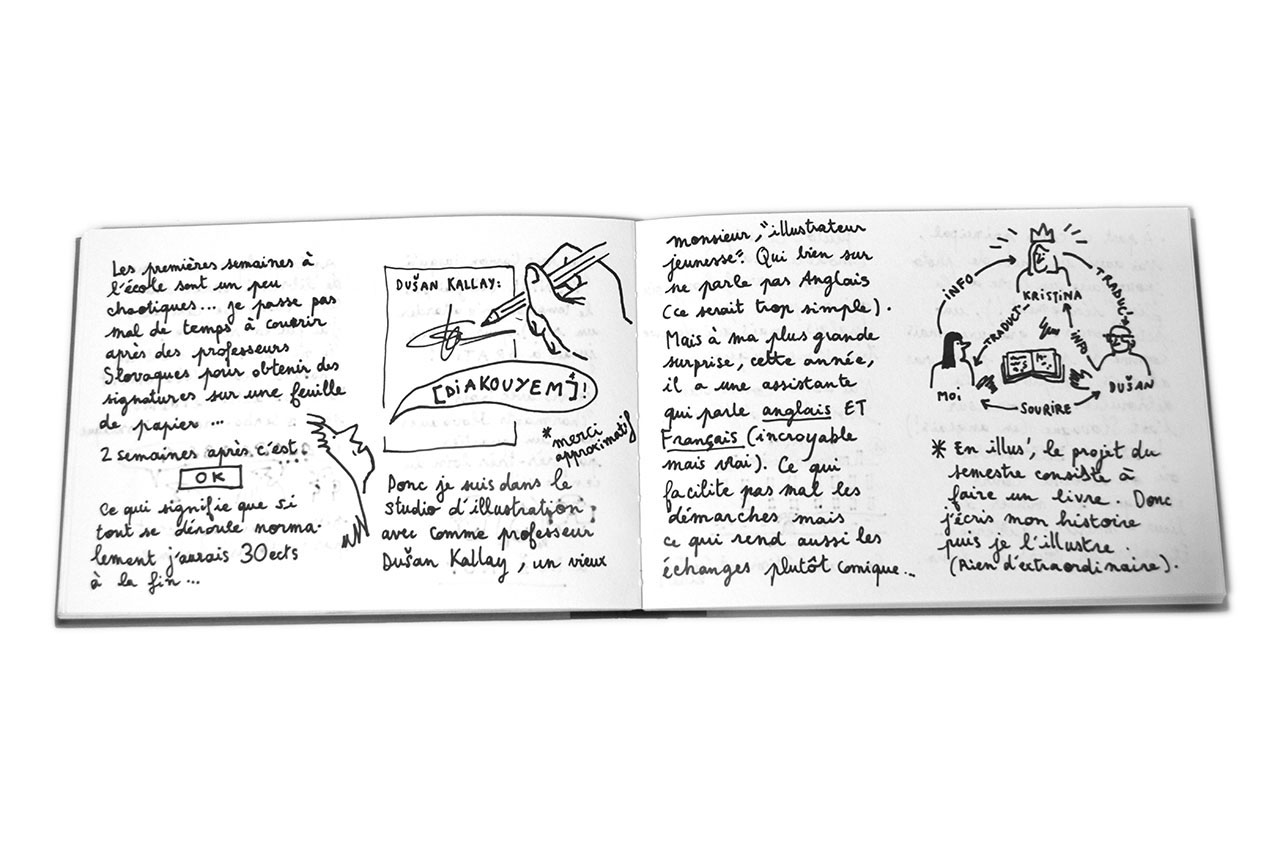 Les premières semaines à
l'école sont un peu
chaotiques... je passe pas
mal de temps à courir
après des professeurs
Slovaques pour obtenir des
signatures sur une feuille
de papier ...
2 semaines après c'est:
OK
ce qui signifie que si
tout se déroule norma-
lement j'aurais 30 ects
à la fin ...
DUŠAN KALLAY:
[DiAKOUYEM]*!
*merci
approximatif
Donc je suis dans le
studio d'illustration,
avec comme professeur
Dušan Kallay, un vieux
monsieur, "illustrateur
jeunesse". Qui bien sur
ne parle pas Anglais
(ce serait trop simple).
Mais à ma plus grande
surprise, cette année,
il a une assistante
qui parle anglais ET
Français (incroyable
mais vrai). Ce qui
facilite pas mal les
démarches mais
ce qui rend aussi les
échanges plutôt comique...
KRISTINA
INFO
TRADUCT°
TRADUCT°
INFO
MOI
DUŠAN
SOURIRE
* En illus', le projet du
semestre consiste à
faire un livre. Donc
j'écris mon histoire
puis je l'illustre.
(Rien d'extraordinaire).